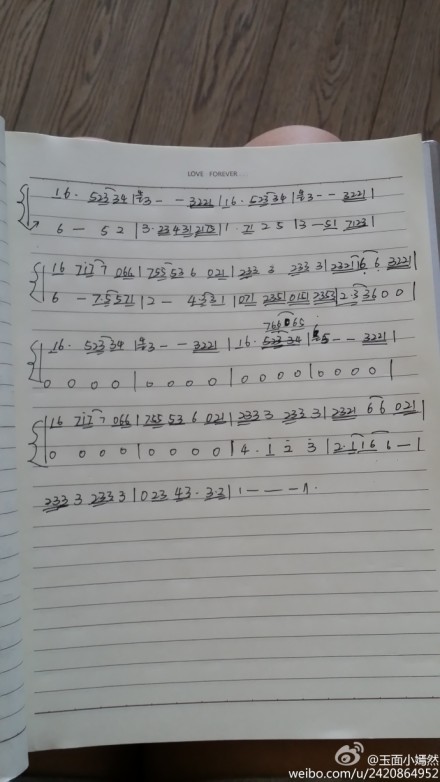 LOVE FOREVER...
16· 52334 |⁴3 - - 3221 | 16· 52334 |⁴3 - - 3221 |
6 - 5 2 | 3· 23431 2173 | 1· 71 2 5 | 3 - 51 7123 |
16 7177 066 | 755 53 6 021 | 233 3 233 3 | 2321 16 6 3221 |
6 - 75571 | 2 - 4·331 | 071 2351 0151 2353 | 2·33600 |
766065
16· 52334 |⁴3 - - 3221 | 16· 52334 | 5 - - 3221 |
0 0 0 0 | 0 0 0 0 | 0 0 0 0 | 0 0 0 0 |
16 7177 066 | 755 53 6 021 | 233 3 233 3 | 2321 6 6 021 |
0 0 0 0 | 0 0 0 0 | 4· 1 2 3 | 2·1 1 6 6 - |
233 3 233 3 | 023 43· 32 | 1 - - - |
@玉面小嫣然
weibo.com/u/2420864952